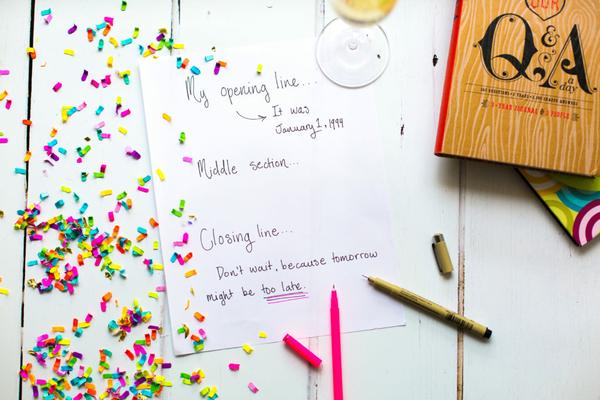 My opening line...
It was
January 1, 1994
Middle section...
Closing line...
Don't wait, because tomorrow
might be too late.
OUR
Q&A
a day
3-YEAR JOURNAL 2 PEOPLE